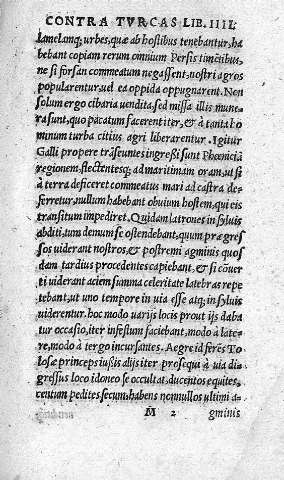 CONTRA TVRCAS LIB. IIII.
lamelamq; urbes, quæ ab hostibus tenebantur, ha
bebant copiam rerum omnium Persis timẽtibus,
ne si forsan commeatum negassent, nostri agros
popularentur, uel ea oppida oppugnarent. Non
solum ergo cibaria uendita, sed missa illis mune
ra sunt, quo pacatum facerent iter, & à tanta ho
minum turba citius agri liberarentur. Igitur
Galli propere trãseuntes ingreßi sunt Phœniciã
regionem, flectentesq; ad maritimam oram, ut si
à terra deficeret commeatus mari ad castra de-
ferretur, nullum habebant obuium hostem, qui eis
transitum impediret. Quidam latrones in syluis
abditi, tum demum se ostendebant, quum præ gres
sos uiderant nostros, & postremi agminis quos
dam tardius procedentes capiebant, & si cõuer
ti uiderant aciem summa celeritate latebras repe
tebant, ut uno tempore in uia esse atq; in syluis
uiderentur. hoc modo uarijs locis prout ijs daba
tur occasio, iter infestum faciebant, modo à late-
re, modo à tergo incursantes. Aegre id ferẽs To
losæ princeps iußis alijs iter prosequi à uia di-
gressus loco idoneo se occultat, ducentos equites,
centum pedites secum, habens nonnullos ultimi a-
M 2 gminis